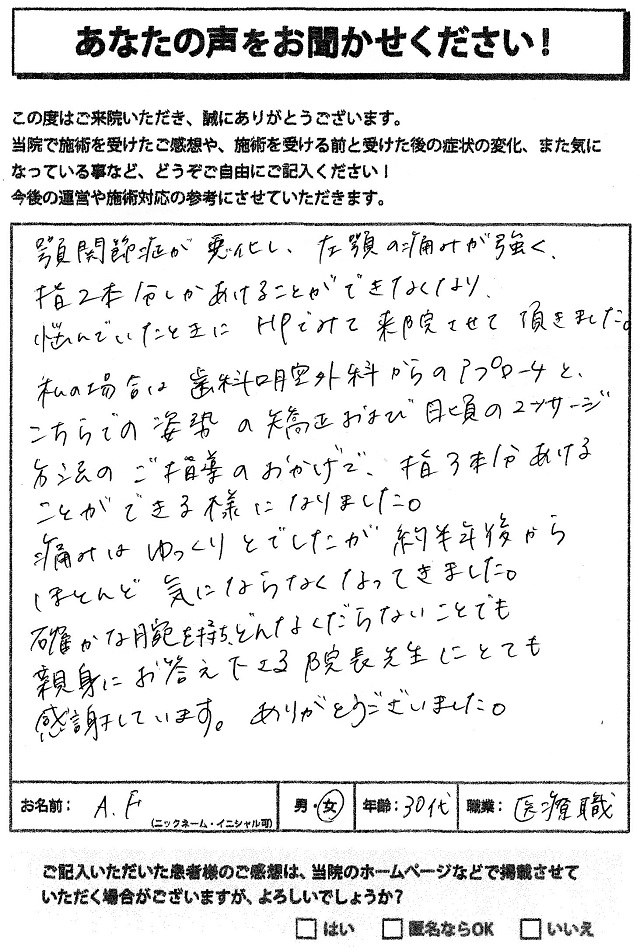 あなたの声をお聞かせください！
この度はご来院いただき、誠にありがとうございます。
当院で施術を受けたご感想や、施術を受ける前と受けた後の症状の変化、また気に
なっている事など、どうぞご自由にご記入ください！
今後の運営や施術対応の参考にさせていただきます。
顎関節症が悪化し、左顎の痛みが強く、
指2本分しかあけることができなくなり、
悩んでいたときに HPでみて来院させて頂きました。
私の場合は歯科口腔外科からのアプローチと、
こちらでの姿勢の矯正および日頃のマッサージ
方法のご指導のおかげで、指3本分あける
ことができる様になりました。
痛みはゆっくりとでしたが約半年後から
ほとんど気にならなくなってきました。
確かな腕を持ち、どんなくだらないことでも
親身にお答え下さる院長先生にとても
感謝しています。ありがとうございました。
お名前： A.F （ニックネーム・イニシャル可） 男・女 年齢：30代 職業：医療職
ご記入いただいた患者様のご感想は、当院のホームページなどで掲載させて
いただく場合がございますが、よろしいでしょうか？
□ はい □ 匿名ならOK □ いいえ